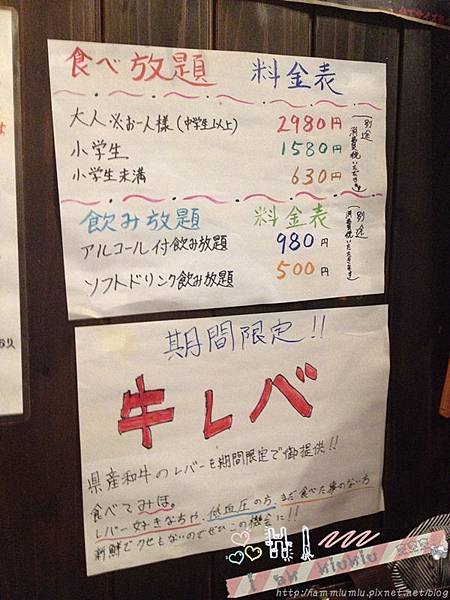 食べ放題 料金表
大人 ※お一人様(中学生以上) 2980円
小学生 1580円
小学生未満 630円
(別途消費税いただきます)
飲み放題 料金表
アルコール付飲み放題 980円
ソフトドリンク飲み放題 500円
(別途消費税いただきます)
期間限定!!
牛レバ
県産和牛のレバーを期間限定で御提供!!
食べてみほ。
レバー好きなちゃ、低血圧の方、まだ食べた事のない方
新鮮でクセもないのでぜひこの機会に!!
HI
I am MiuMiu
http://iammiumiu.pixnet.net/blog